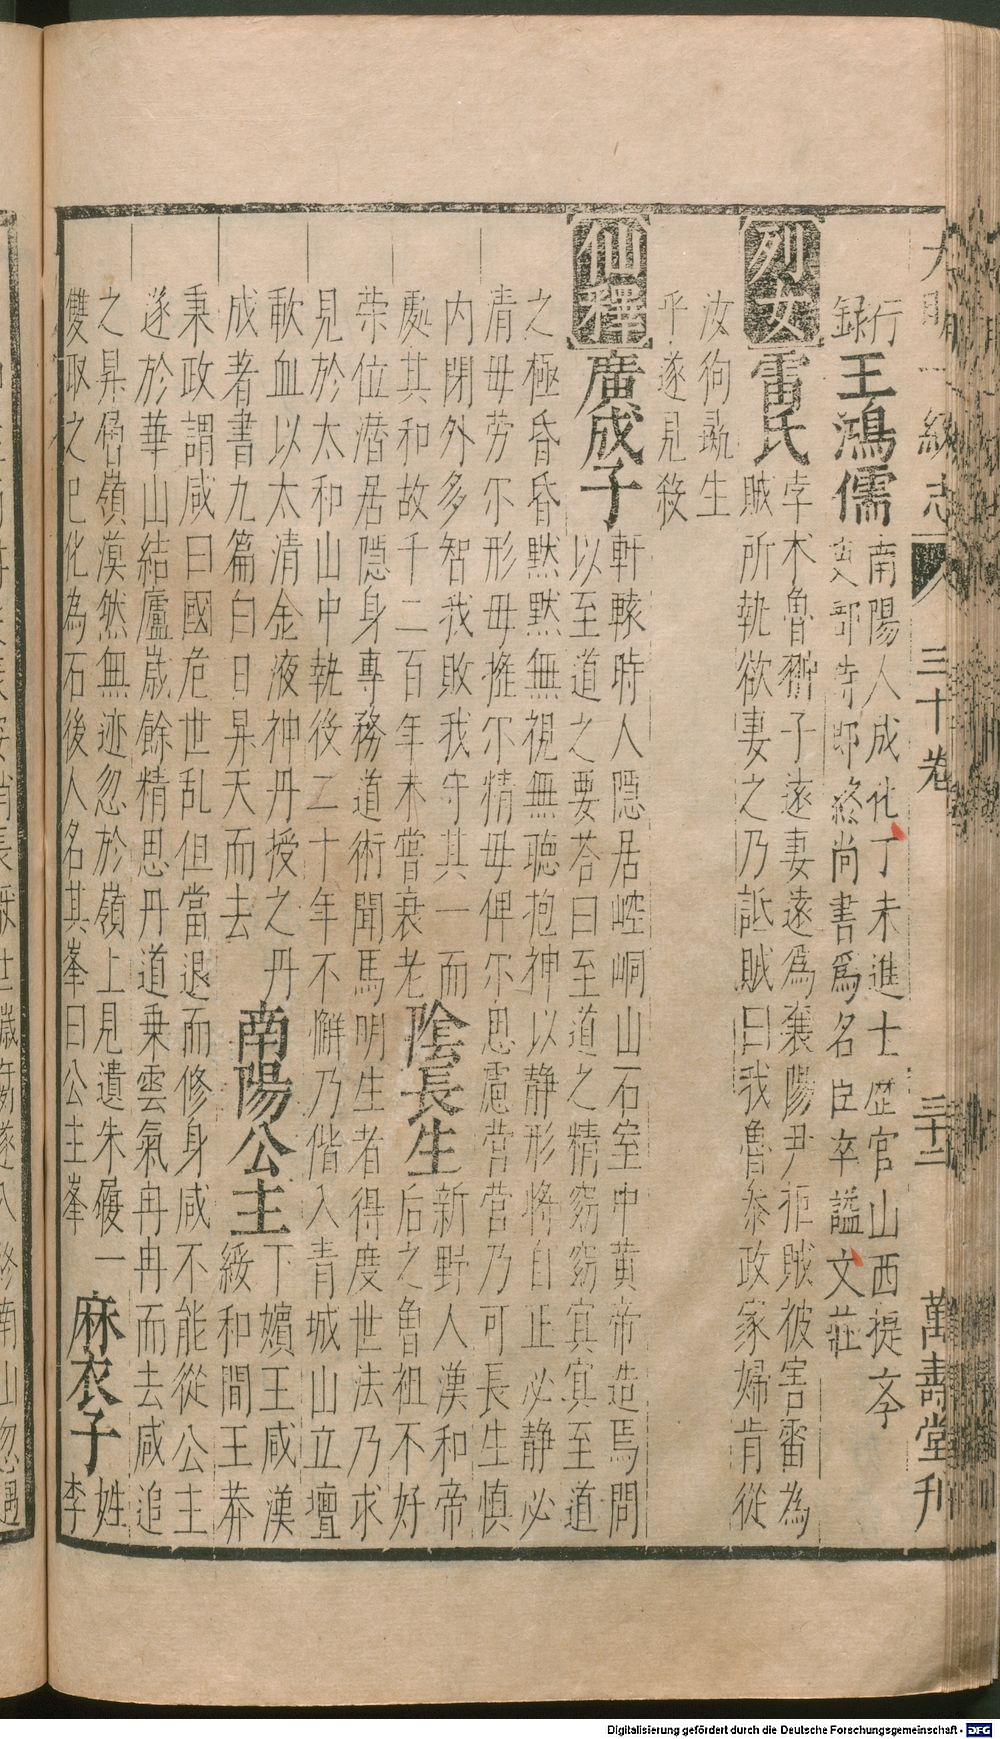 大明一統志 三十卷 三十二 萬壽堂刊
行
録
王鴻儒
南陽人成化丁未進士歷官山西提斈
吏部侍郎終尚書爲名臣卒諡文莊
烈女
雷氏
孛木魯翀子遠妻遠爲襄陽尹祖賊被害雷為
賊所執欲妻之乃詆賊曰我魯叅政家婦肯從
汝狗彘生
乎遂見殺
仙釋
廣成子
軒轅時人隱居崆峒山石室中黄帝造焉問
以至道之要荅曰至道之精窈窈冥冥至道
之極昏昏黙黙無視無聴抱神以静形將自正必静必
清毋労尓形毋摇尓精毋俾尓思慮营营乃可長生慎
内閉外多智我敗我守其一而
處其和故千二百年未嘗衰老
陰長生
新野人漢和帝
后之曾祖不好
荣位濳居隱身專務道術聞馬明生者得度世法乃求
見於太和山中執役二十年不懈乃偕入青城山立壇
歃血以太清金液神丹授之丹
成者書九篇白日昇天而去
南陽公主
下嬪王咸漢
綏和間王莽
秉政謂咸曰國危世乱但當退而修身咸不能從公主
遂於華山結廬嵗餘精思丹道乗雲氣冉冉而去咸追
之昇嵓嶺漠然無迹忽於嶺上見遺朱履一
雙取之已化為石後人名其峯曰公主峯
麻衣子
姓
李
Digitalisierung gefördert durch die Deutsche Forschungsgemeinschaft - DFG